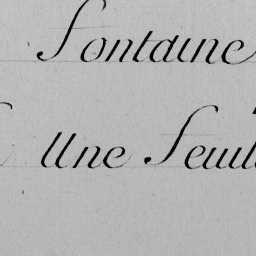 Fontaine
Une Seule